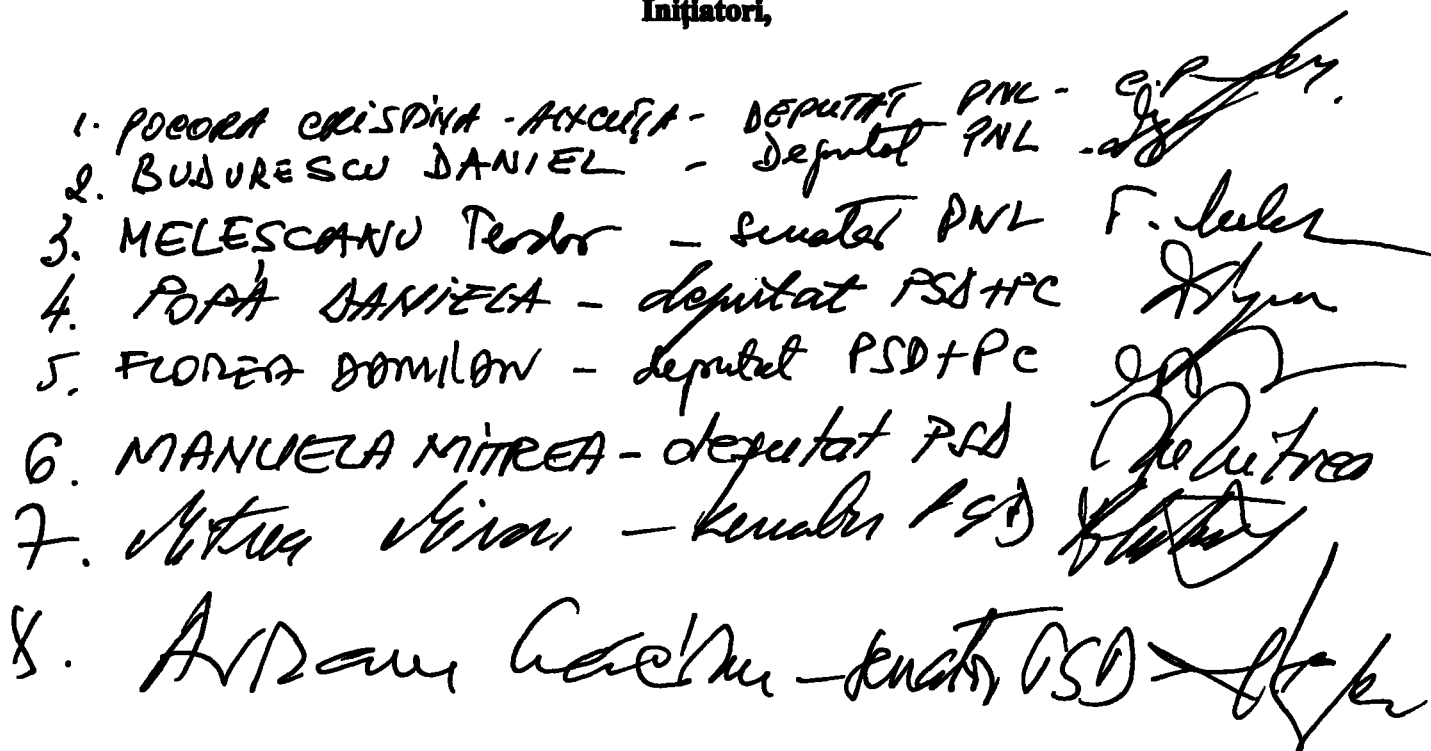 Inițiatori,
1. POCORA CRISTINA-ANCUȚA - DEPUTAT PNL -
2. BUDURESCU DANIEL - Deputat PNL -
3. MELEȘCANU Teodor - senator PNL
4. POPA DANIELA - deputat PSD+PC
5. FLOREA DAMIAN - deputat PSD+PC
6. MANUELA MITREA - deputat PSD MMitrea
7. Mitrea Miron - senator PSD
8. Arcan - senator PSD